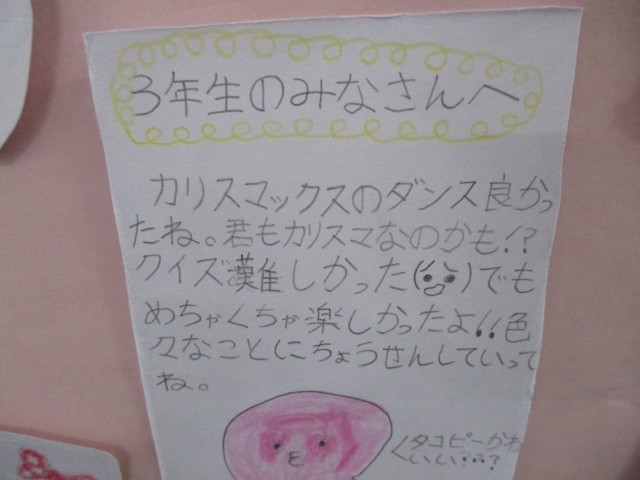 3年生のみなさんへ
カリスマックスのダンス良かっ
たね。君もカリスマなのかも!?
クイズ難しかった(>o<)でも
めちゃくちゃ楽しかったよ!!色
々なことにちょうせんしていって
ね。
タコピーかわ
いい??